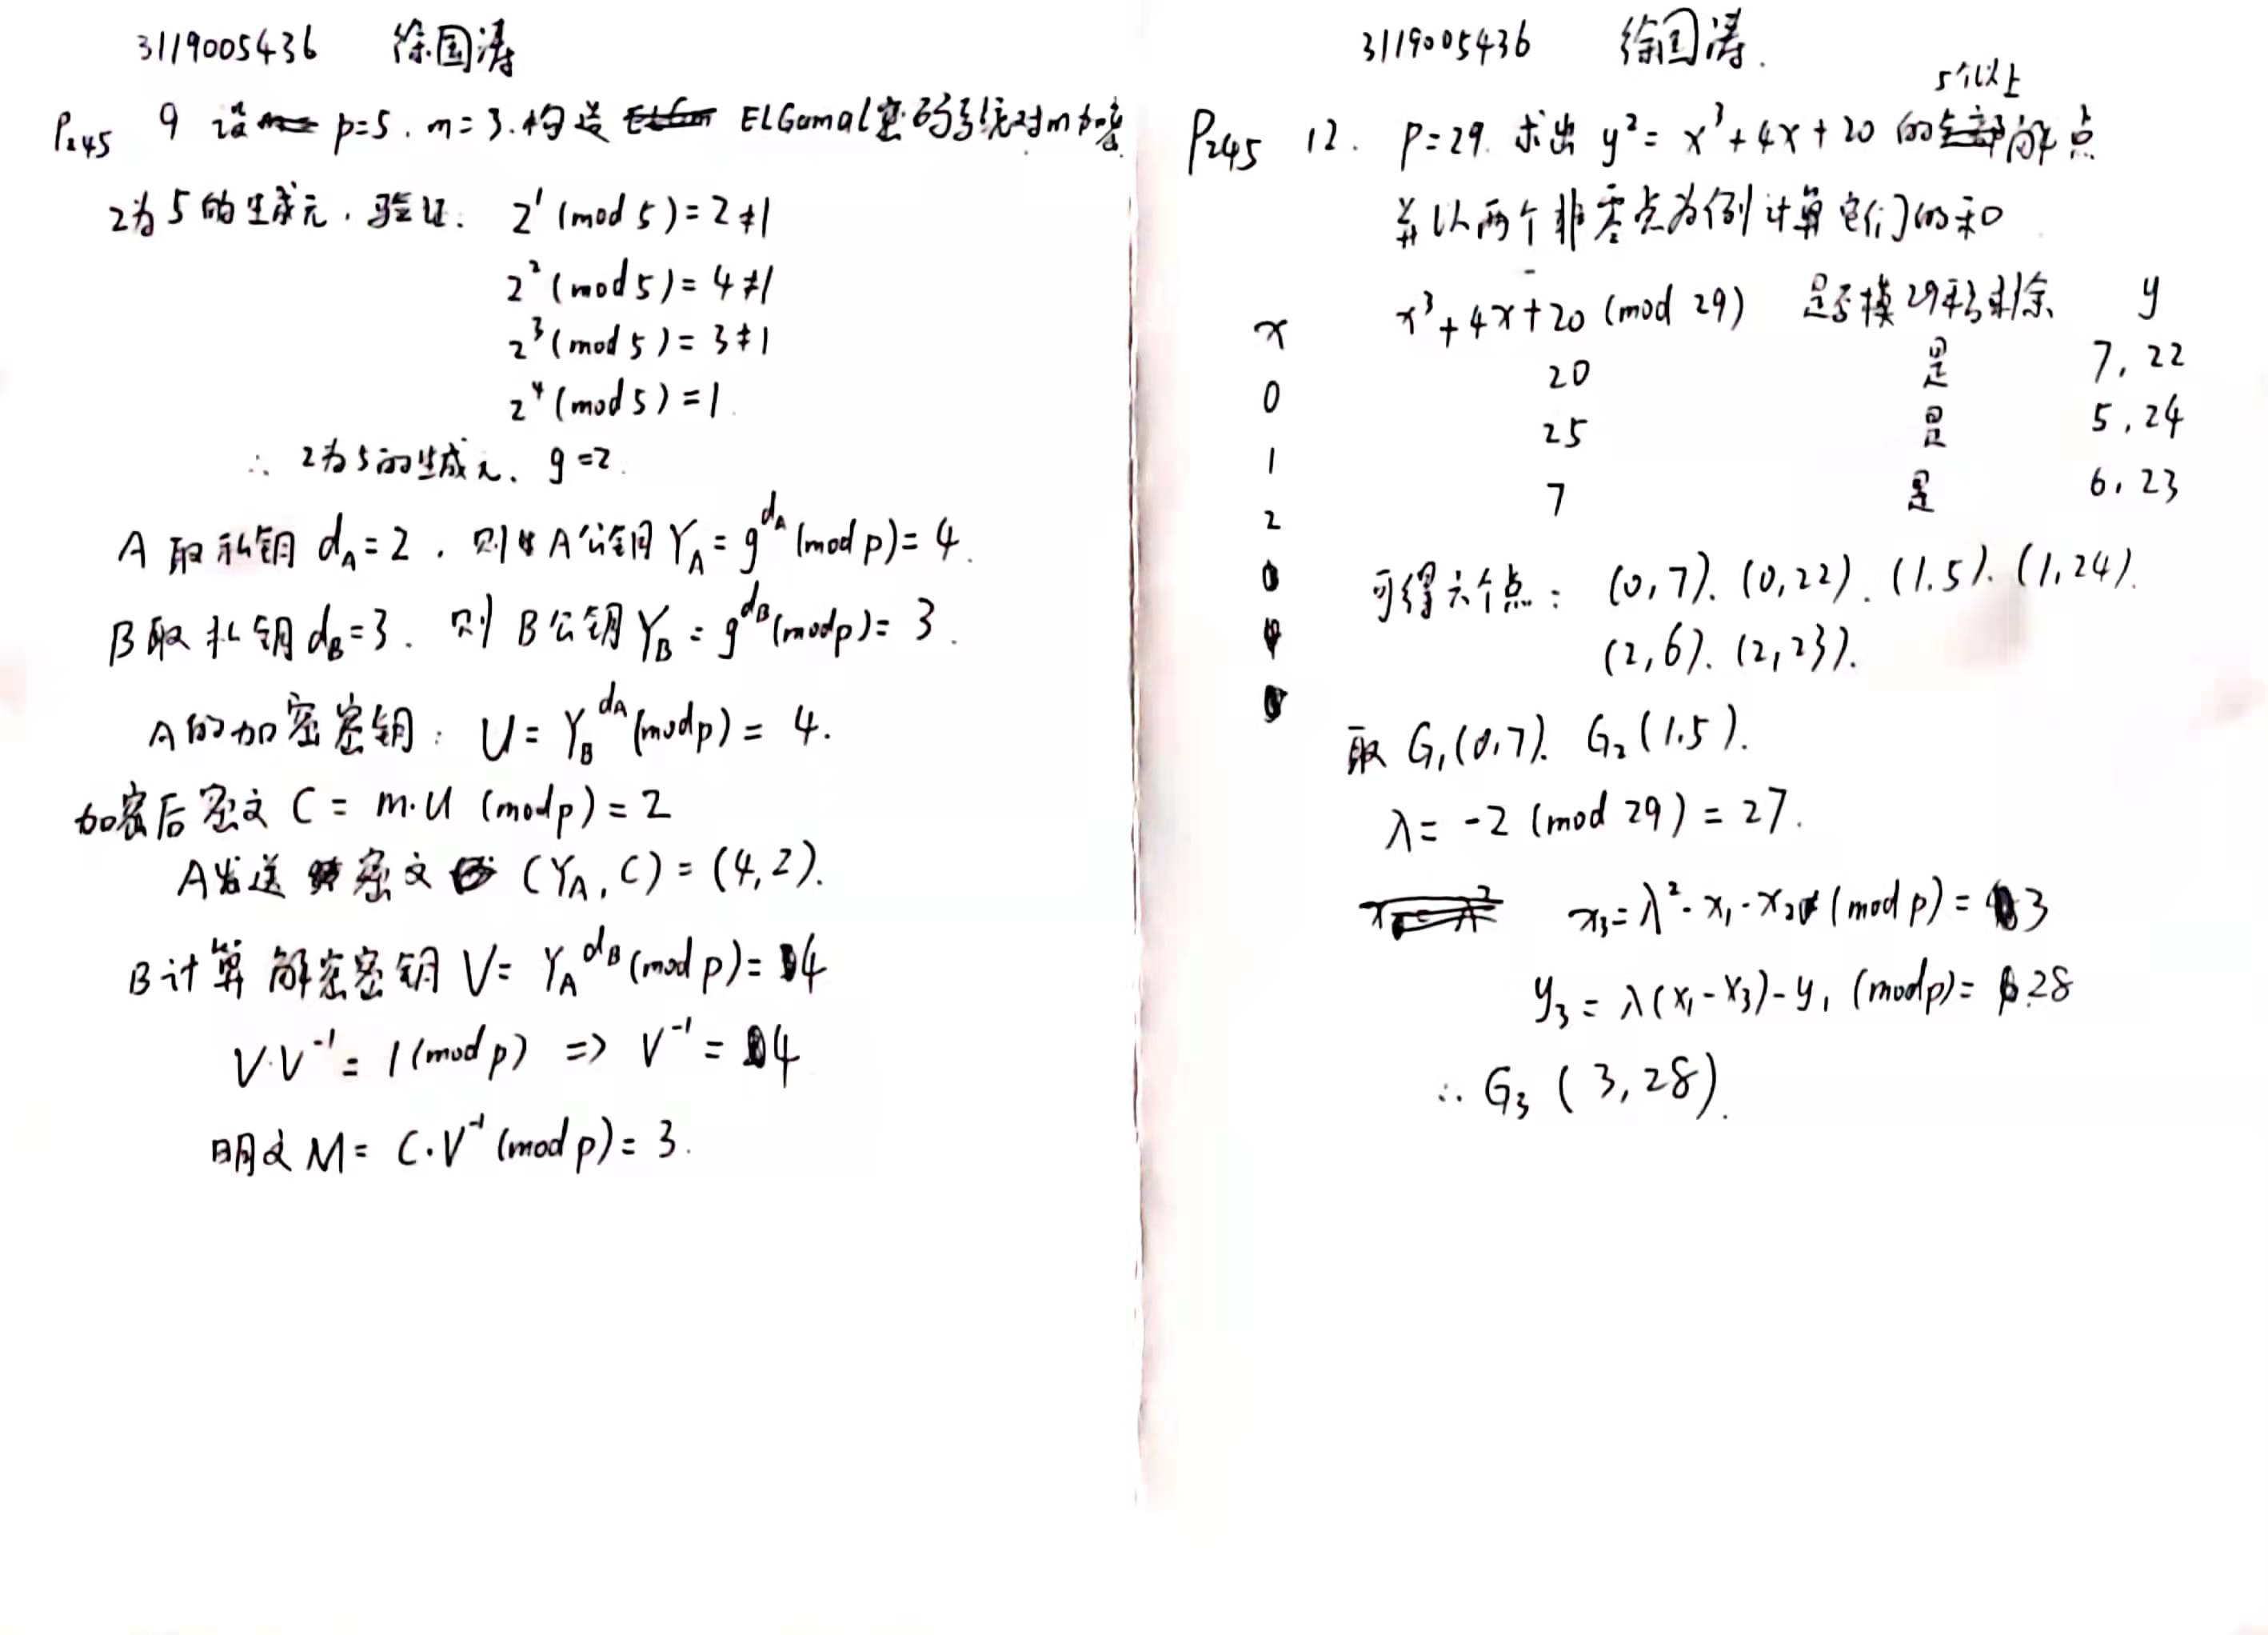 3119005436 徐国涛
P245 9 设 p=5, m=3. 构造 ELGamal密码系统对m加密.
2为5的生成元. 验证: 2¹ (mod 5) = 2 ≠ 1
2² (mod 5) = 4 ≠ 1
2³ (mod 5) = 3 ≠ 1
2⁴ (mod 5) = 1.
∴ 2为5的生成元. g = 2.
A 取私钥 d_A = 2 . 则 A公钥 Y_A = g^{d_A} (mod p) = 4.
B 取私钥 d_B = 3 . 则 B公钥 Y_B = g^{d_B} (mod p) = 3.
A的加密密钥: U = Y_B^{d_A} (mod p) = 4.
加密后密文 C = m·U (mod p) = 2
A发送密文 (Y_A, C) = (4, 2).
B计算解密密钥 V = Y_A^{d_B} (mod p) = 4
V·V⁻¹ = 1 (mod p) => V⁻¹ = 4
明文 M = C·V⁻¹ (mod p) = 3.
3119005436 徐国涛.
5个以上
P245 12. p=29. 求出 y² = x³+4x+20 的解点
并以两个非零点为例计算它们的和
x x³+4x+20 (mod 29) 是否模29平方剩余 y
0 20 是 7, 22
1 25 是 5, 24
2 7 是 6, 23
可得六个点: (0,7). (0,22). (1.5). (1,24).
(2,6). (2,23).
取 G₁(0,7). G₂(1.5).
λ = -2 (mod 29) = 27.
x₃ = λ² - x₁ - x₂ (mod p) = 3
y₃ = λ(x₁ - x₃) - y₁ (mod p) = 28
∴ G₃ (3, 28).